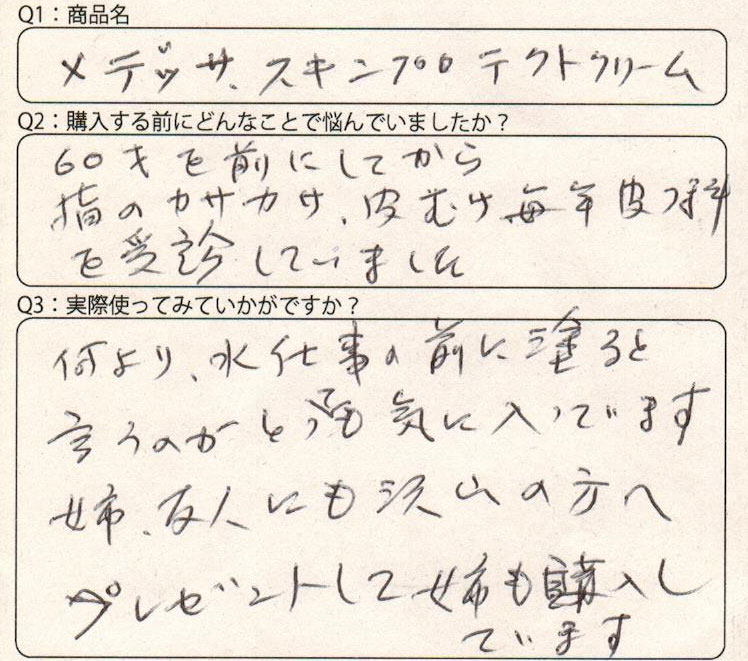 Q1：商品名
メデッサ、スキンプロテクトクリーム
Q2：購入する前にどんなことで悩んでいましたか？
60才を前にしてから
指のカサカサ、皮むけ毎年皮フ科
を受診していました
Q3：実際使ってみていかがですか？
何より、水仕事の前に塗ると
言うのがとっても気に入っています
姉、友人にも沢山の方へ
プレゼントして姉も購入し
ています